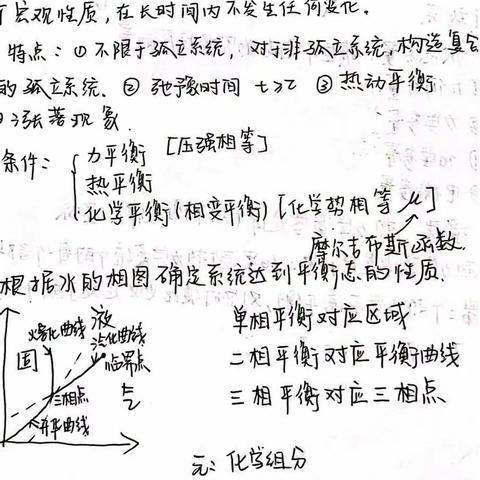 宏观性质,在长时间内不发生任何变化。
特点:①不限于孤立系统,对于非孤立系统,构造复合
的孤立系统、②弛豫时间 t>τ ③热动平衡
涨落现象.
条件:
力平衡 [压强相等]
热平衡
化学平衡(相变平衡)[化学势相等 μ]
摩尔吉布斯函数.
根据水的相图确定系统达到平衡态的性质.
熔化曲线 液
汽化曲线
固 临界点
三相点 气
升华曲线
单相平衡对应区域
二相平衡对应平衡曲线
三相平衡对应三相点
元:化学组分